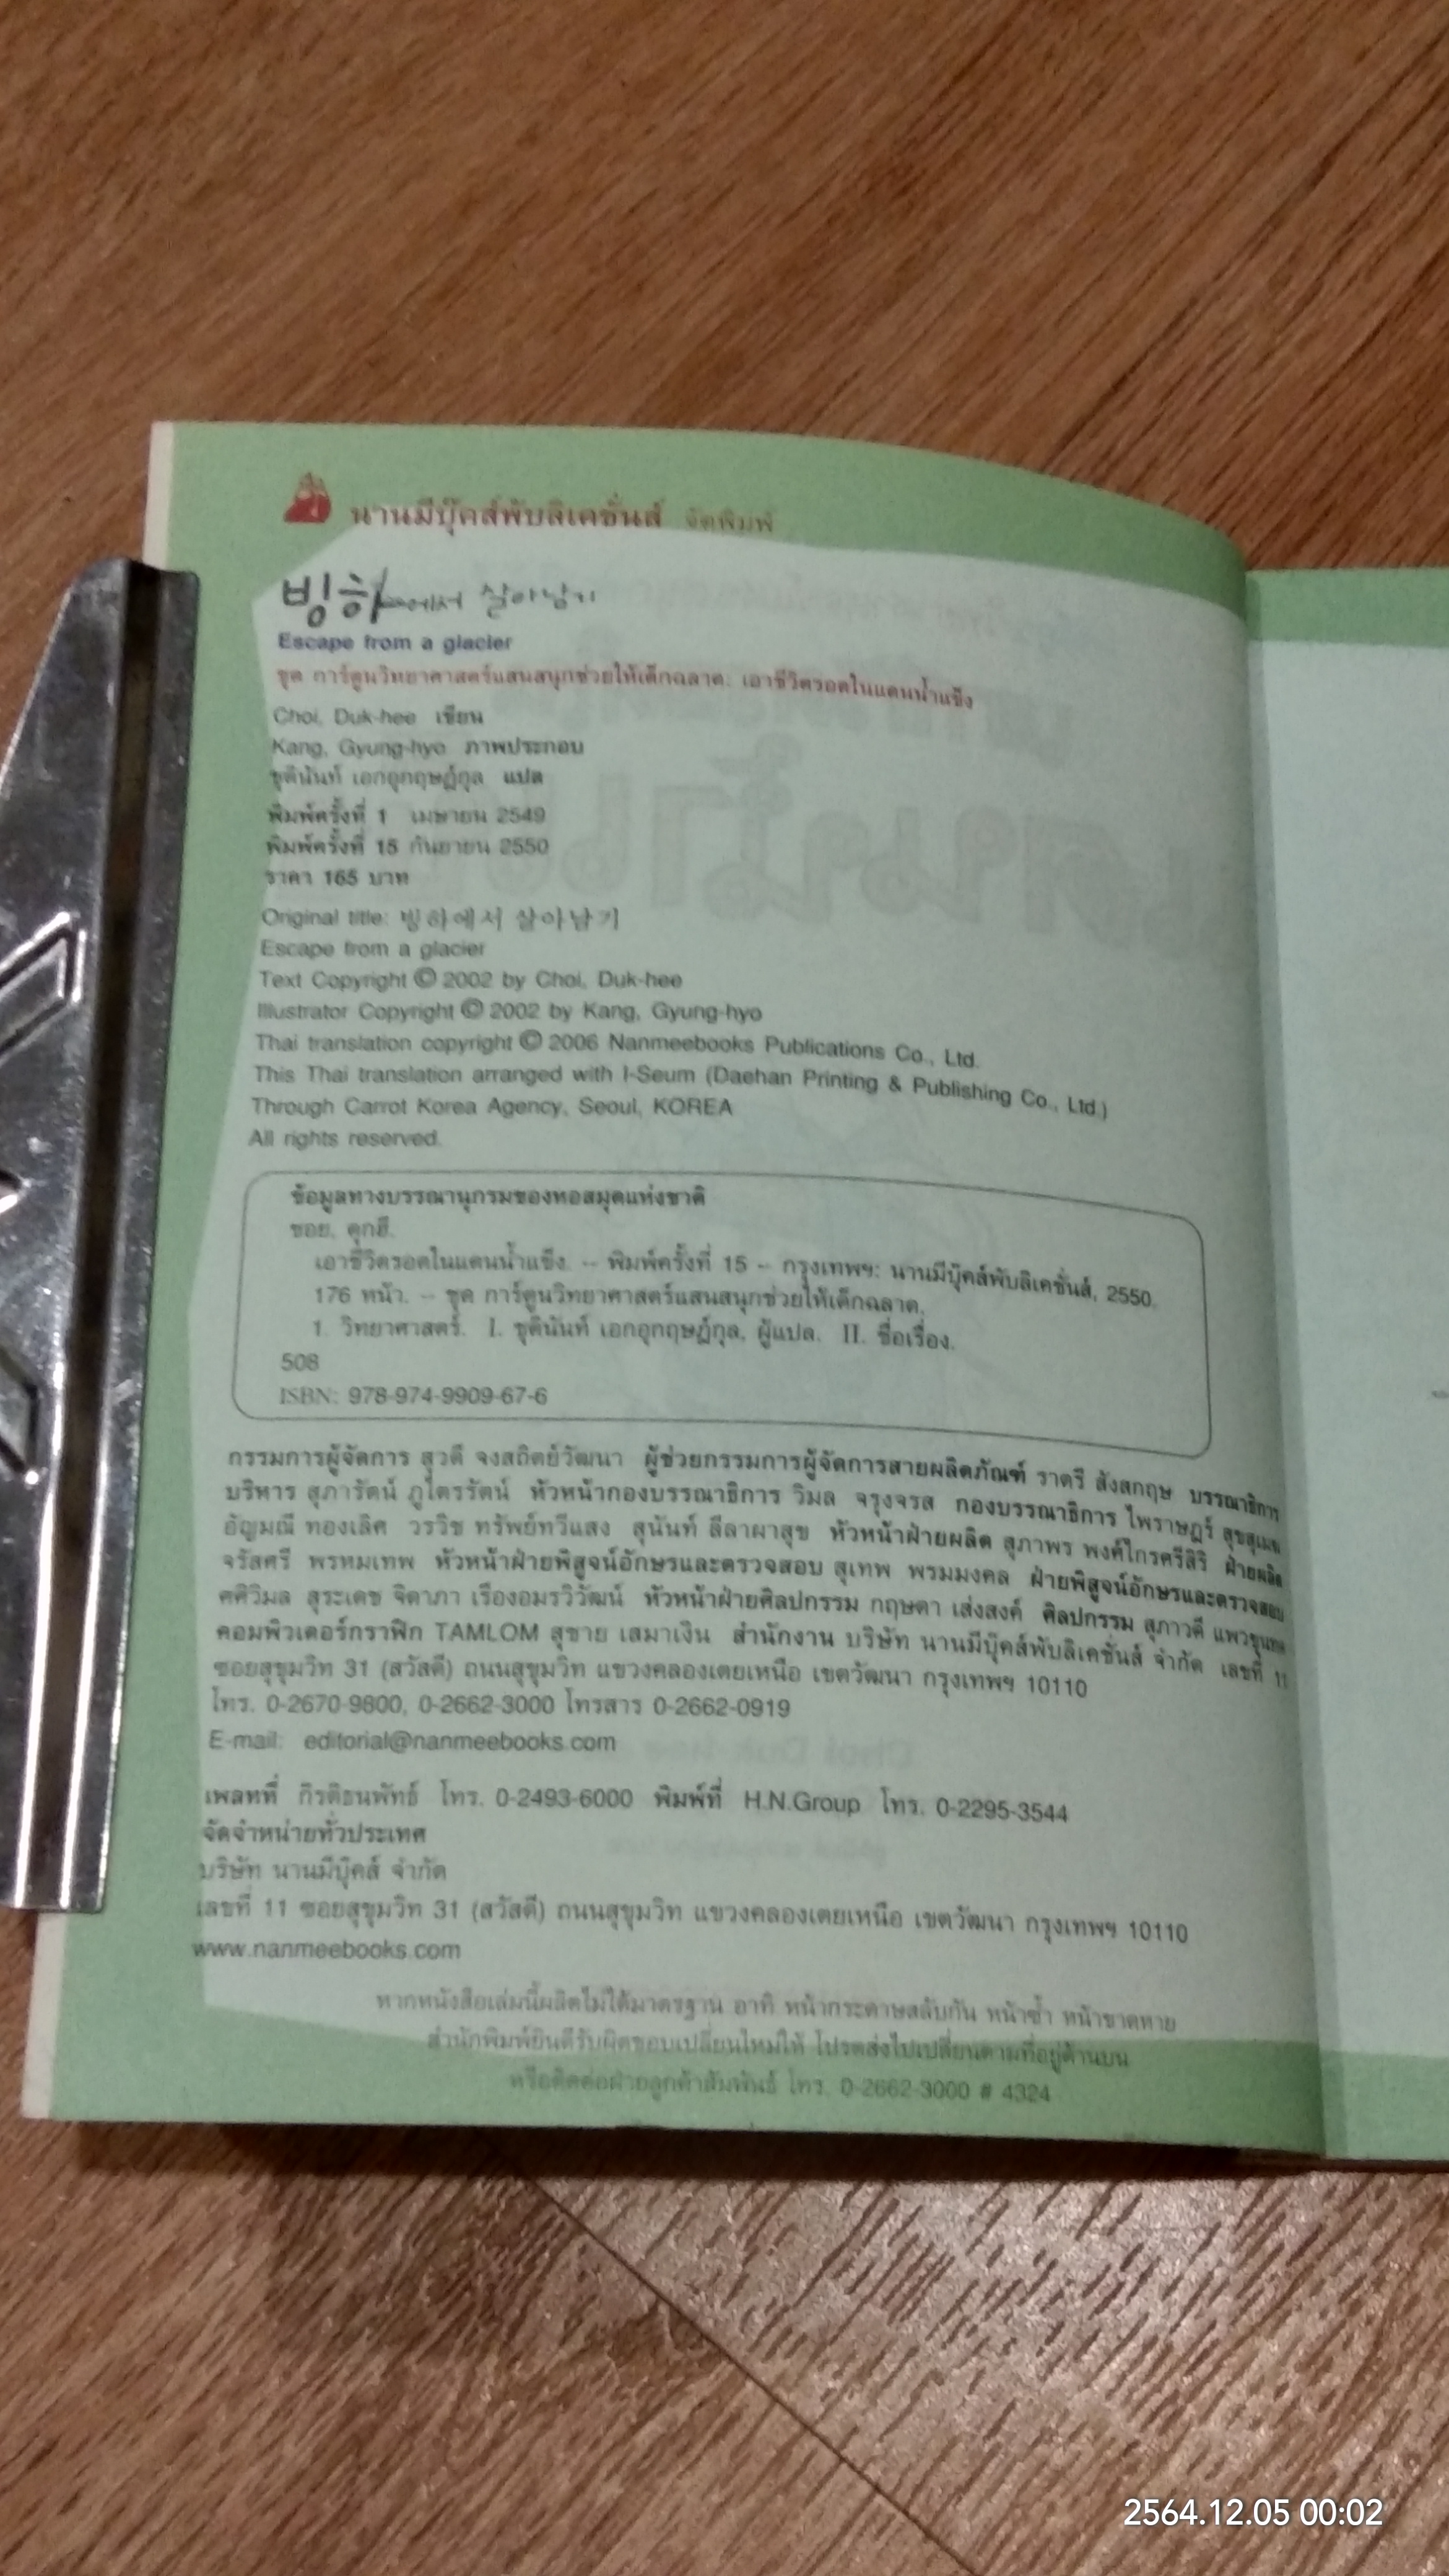 นานมีบุ๊คส์พับลิเคชั่นส์ จัดพิมพ์
빙하에서 살아남기
Escape from a glacier
ชุด การ์ตูนวิทยาศาสตร์แสนสนุกช่วยให้เด็กฉลาด: เอาชีวิตรอดในแดนน้ำแข็ง
Choi, Duk-hee เขียน
Kang, Gyung-hyo ภาพประกอบ
ชุตินันท์ เอกอุกฤษฎ์กุล แปล
พิมพ์ครั้งที่ 1 เมษายน 2549
พิมพ์ครั้งที่ 15 กันยายน 2550
ราคา 165 บาท
Original title: 빙하에서 살아남기
Escape from a glacier
Text Copyright © 2002 by Choi, Duk-hee
Illustrator Copyright © 2002 by Kang, Gyung-hyo
Thai translation copyright © 2006 Nanmeebooks Publications Co., Ltd.
This Thai translation arranged with I-Seum (Daehan Printing & Publishing Co., Ltd.)
Through Carrot Korea Agency, Seoul, KOREA
All rights reserved.
ข้อมูลทางบรรณานุกรมของหอสมุดแห่งชาติ
ชอย, ดุกฮี.
เอาชีวิตรอดในแดนน้ำแข็ง. -- พิมพ์ครั้งที่ 15 -- กรุงเทพฯ: นานมีบุ๊คส์พับลิเคชั่นส์, 2550.
176 หน้า. -- ชุด การ์ตูนวิทยาศาสตร์แสนสนุกช่วยให้เด็กฉลาด.
1. วิทยาศาสตร์. I. ชุตินันท์ เอกอุกฤษฎ์กุล, ผู้แปล. II. ชื่อเรื่อง.
508
ISBN: 978-974-9909-67-6
กรรมการผู้จัดการ สุวดี จงสถิตย์วัฒนา ผู้ช่วยกรรมการผู้จัดการสายผลิตภัณฑ์ ราตรี สังสกฤษ บรรณาธิการ
บริหาร สุภารัตน์ ภูไตรรัตน์ หัวหน้ากองบรรณาธิการ วิมล จรุงจรส กองบรรณาธิการ ไพราษฎร์ สุขสุเมฆ
อัญมณี ทองเลิศ วรวิช ทรัพย์ทวีแสง สุนันท์ ลีลาผาสุข หัวหน้าฝ่ายผลิต สุภาพร พงศ์ไกรศรีสิริ ฝ่ายผลิต
จรัสศรี พรหมเทพ หัวหน้าฝ่ายพิสูจน์อักษรและตรวจสอบ สุเทพ พรมมงคล ฝ่ายพิสูจน์อักษรและตรวจสอบ
ศศิวิมล สุระเดช จิดาภา เรืองอมรวิวัฒน์ หัวหน้าฝ่ายศิลปกรรม กฤษดา เส่งสงค์ ศิลปกรรม สุภาวดี
คอมพิวเตอร์กราฟิก TAMLOM สุชาย เสมาเงิน สำนักงาน บริษัท นานมีบุ๊คส์พับลิเคชั่นส์ จำกัด เลขที่ 11
ซอยสุขุมวิท 31 (สวัสดี) ถนนสุขุมวิท แขวงคลองเตยเหนือ เขตวัฒนา กรุงเทพฯ 10110
โทร. 0-2670-9800, 0-2662-3000 โทรสาร 0-2662-0919
E-mail: editorial@nanmeebooks.com
เพลทที่ กิรติธนพัทธ์ โทร. 0-2493-6000 พิมพ์ที่ H.N.Group โทร. 0-2295-3544
จัดจำหน่ายทั่วประเทศ
บริษัท นานมีบุ๊คส์ จำกัด
เลขที่ 11 ซอยสุขุมวิท 31 (สวัสดี) ถนนสุขุมวิท แขวงคลองเตยเหนือ เขตวัฒนา กรุงเทพฯ 10110
www.nanmeebooks.com
หากหนังสือเล่มนี้ผลิตไม่ได้มาตรฐาน อาทิ หน้ากระดาษสลับกัน หน้าซ้ำ หน้าขาดหาย
สำนักพิมพ์ยินดีรับผิดชอบเปลี่ยนใหม่ให้ โปรดส่งไปเปลี่ยนตามที่อยู่ด้านบน
หรือติดต่อฝ่ายลูกค้าสัมพันธ์ โทร. 0-2662-3000 # 4324
2564.12.05 00:02